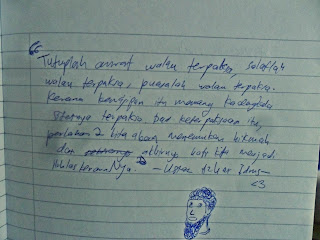 "Tutuplah aurat walau terpaksa, solatlah
walau terpaksa, puasalah walau terpaksa.
Kerana kehidupan itu memang kadangkala
terpaksa. Dari keterpaksaan itu,
perlahan2 kita akan menemukan hikmah
dan akhirnya hati kita menjadi
ikhlas keranaNya. - Ustaz Azhar Idrus -
<3